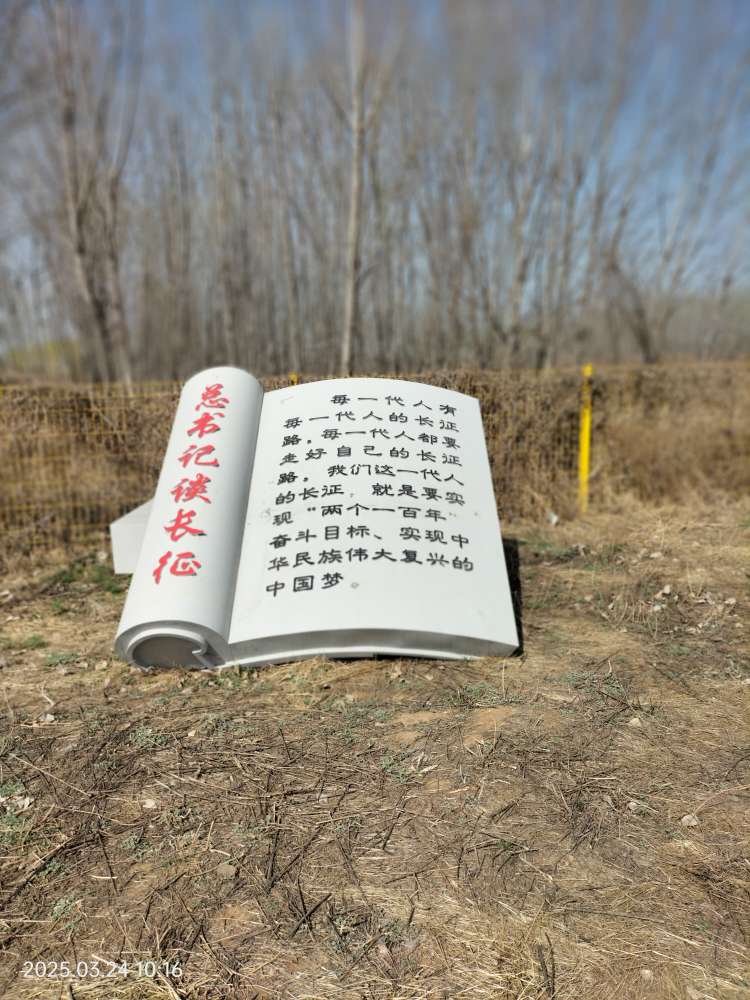 总书记谈长征
每一代人有
每一代人的长征
路。每一代人都要
走好自己的长征
路。我们这一代人
的长征，就是要实
现“两个一百年”
奋斗目标、实现中
华民族伟大复兴的
中国梦。
2025.03.24 10:16